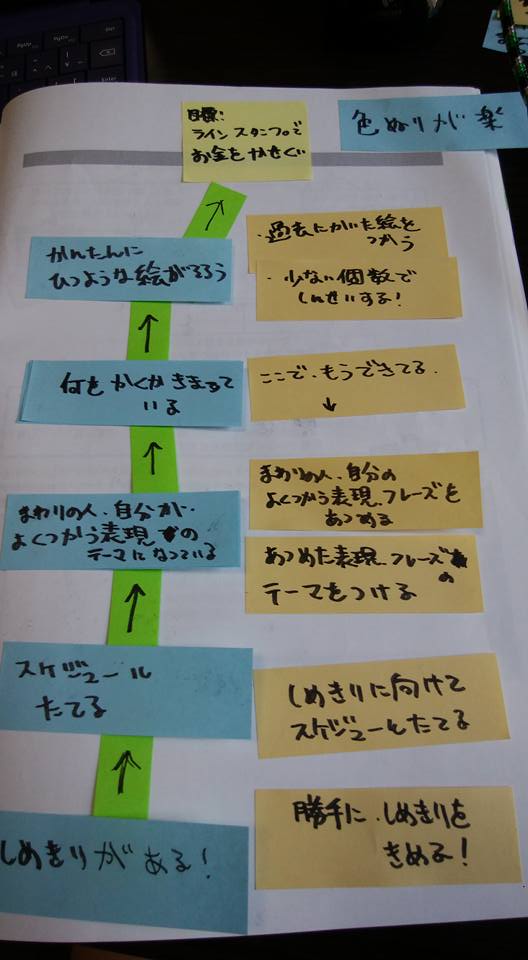 目標:
ライン スタンプで
お金を かせぐ
色ぬりが 楽
かんたんに
ひつような絵がそろう
・過去にかいた絵を
つかう
・少ない個数で
しんせいする!
何をかくかきまって
いる
ここで、もうできてる。
↓
まわりの人、自分が、
よくつかう表現の
テーマになっている
まわりの人、自分の
よくつかう表現、フレーズを
あつめる
あつめた表現、フレーズの
テーマをつける
スケジュール
たてる
しめきりに向けて
スケジュールたてる
しめきりがある!
勝手に、しめきりを
きめる!